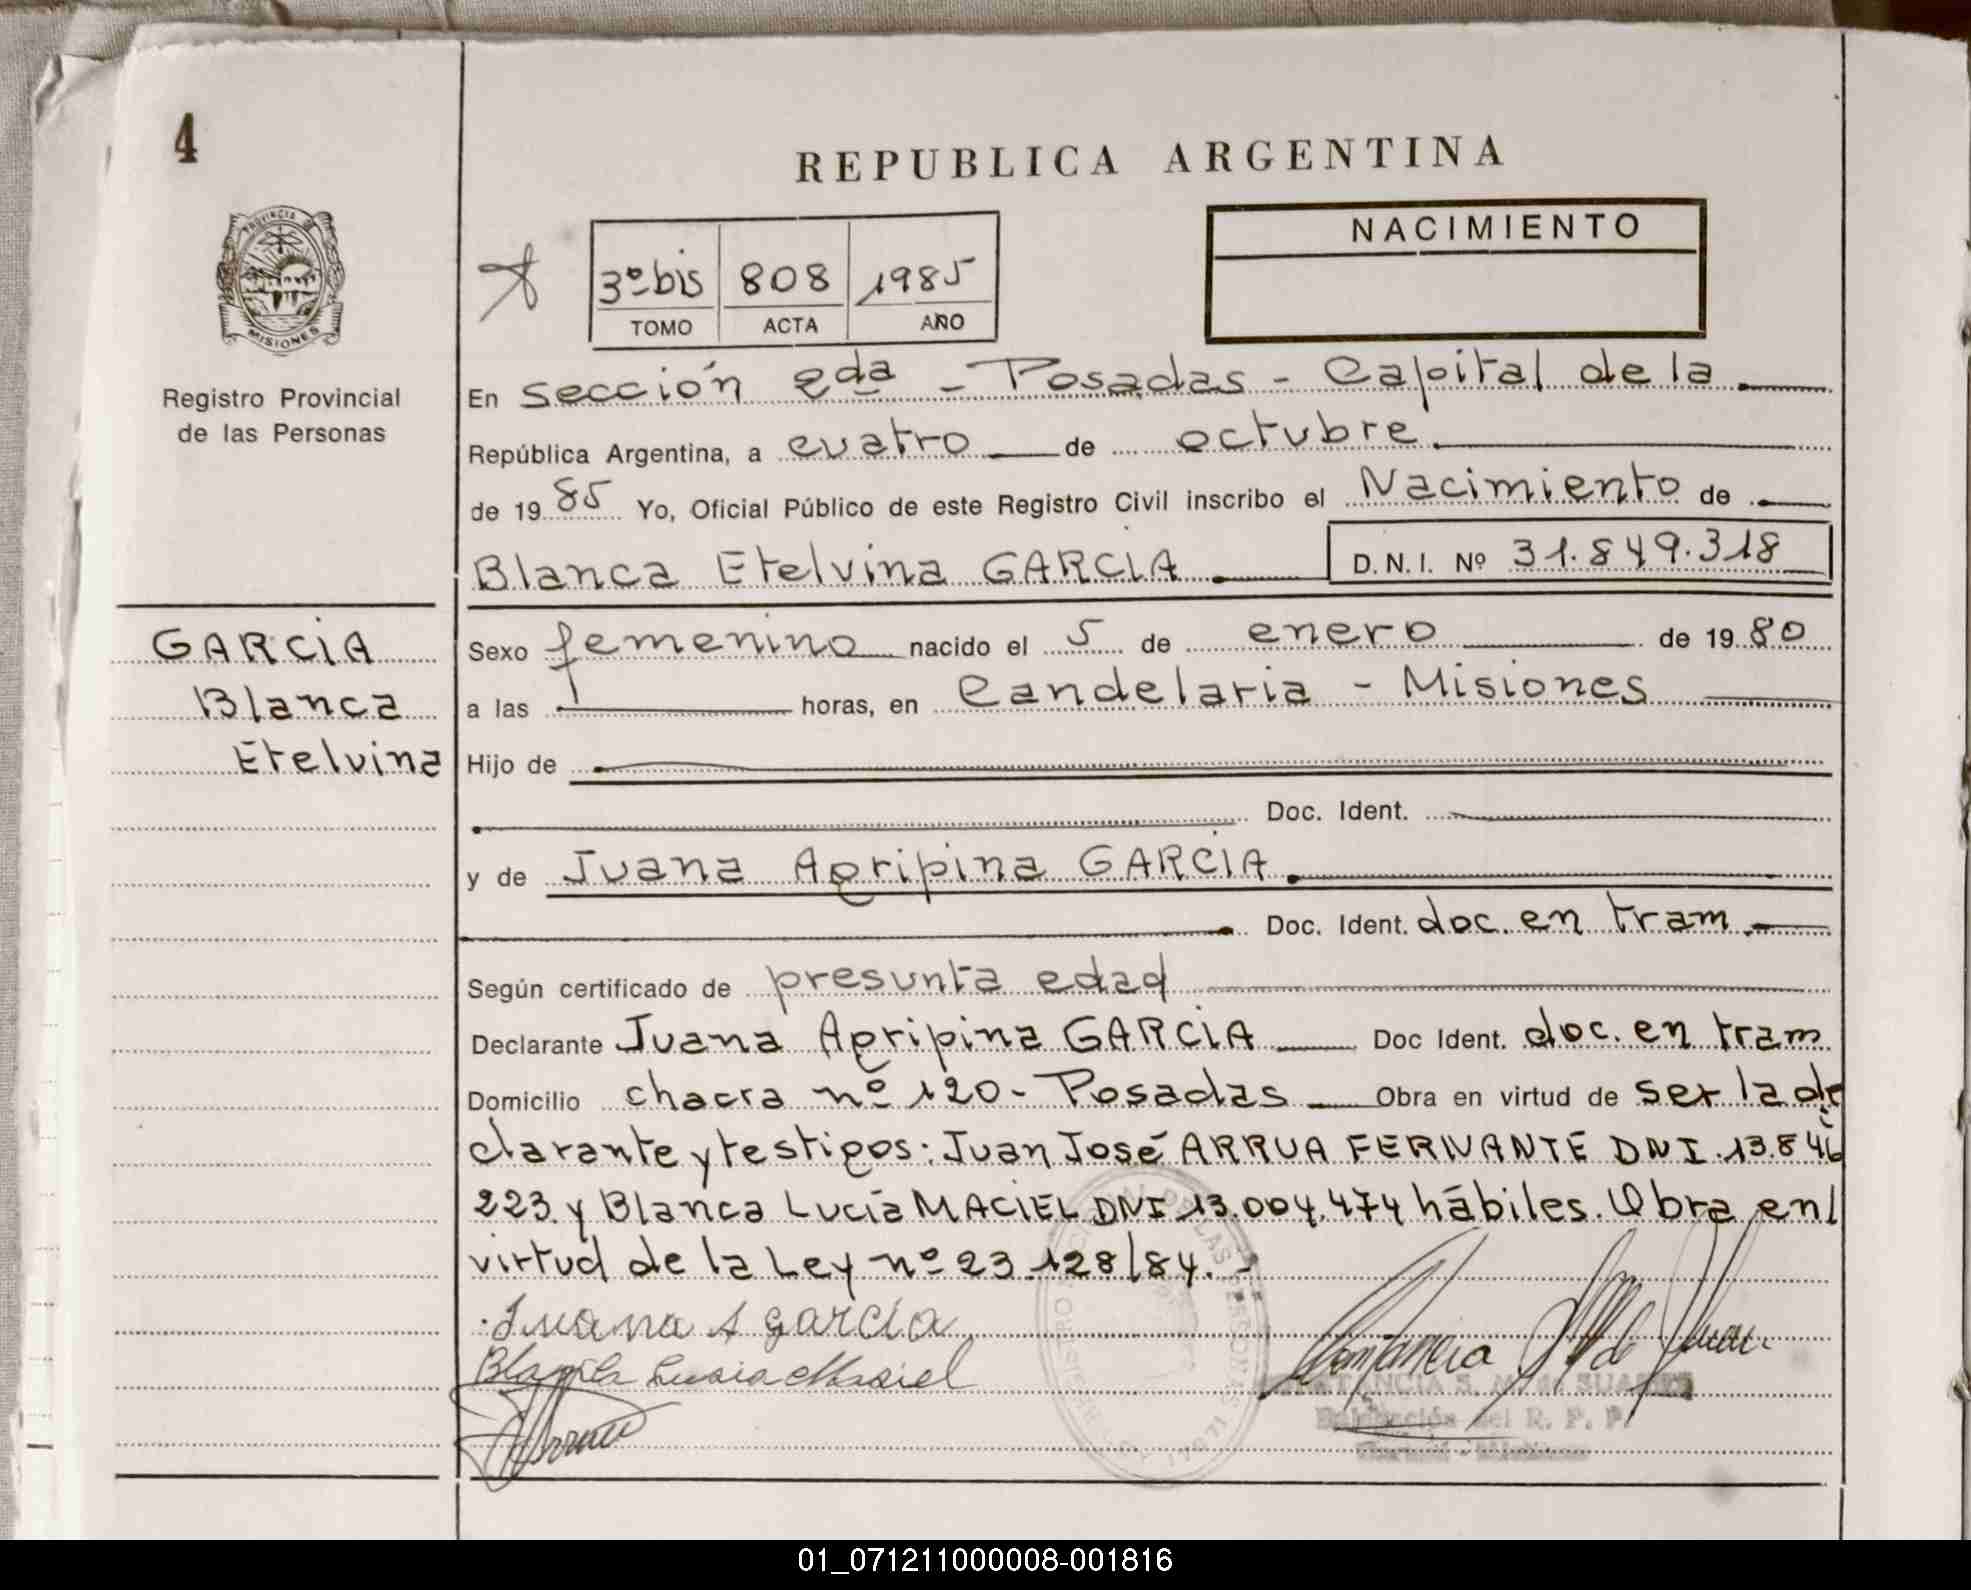 4
REPUBLICA ARGENTINA
PROVINCIA DE
MISIONES
Registro Provincial
de las Personas
3º bis 808 1985
TOMO ACTA AÑO
NACIMIENTO
En sección 2da - Posadas - Capital de la
República Argentina, a cuatro de octubre
de 1985 Yo, Oficial Público de este Registro Civil inscribo el Nacimiento de
Blanca Etelvina GARCIA D.N.I. Nº 31.849.318
GARCIA
Blanca
Etelvina
Sexo femenino nacido el 5 de enero de 1980
a las horas, en Candelaria - Misiones
Hijo de
Doc. Ident.
y de Juana Agripina GARCIA
Doc. Ident. doc. en tram
Según certificado de presunta edad
Declarante Juana Agripina GARCIA Doc Ident. doc. en tram
Domicilio chacra nº 120 - Posadas Obra en virtud de ser la de
clarante y testigos: Juan José ARRUA FERNANTE DNI. 13.846
223 y Blanca Lucía MACIEL DNI 13.004.474 hábiles. Obra en
virtud de la Ley nº 23.128/84. -
Juana A garcia
Blanca Lucia Masiel
01_071211000008-001816